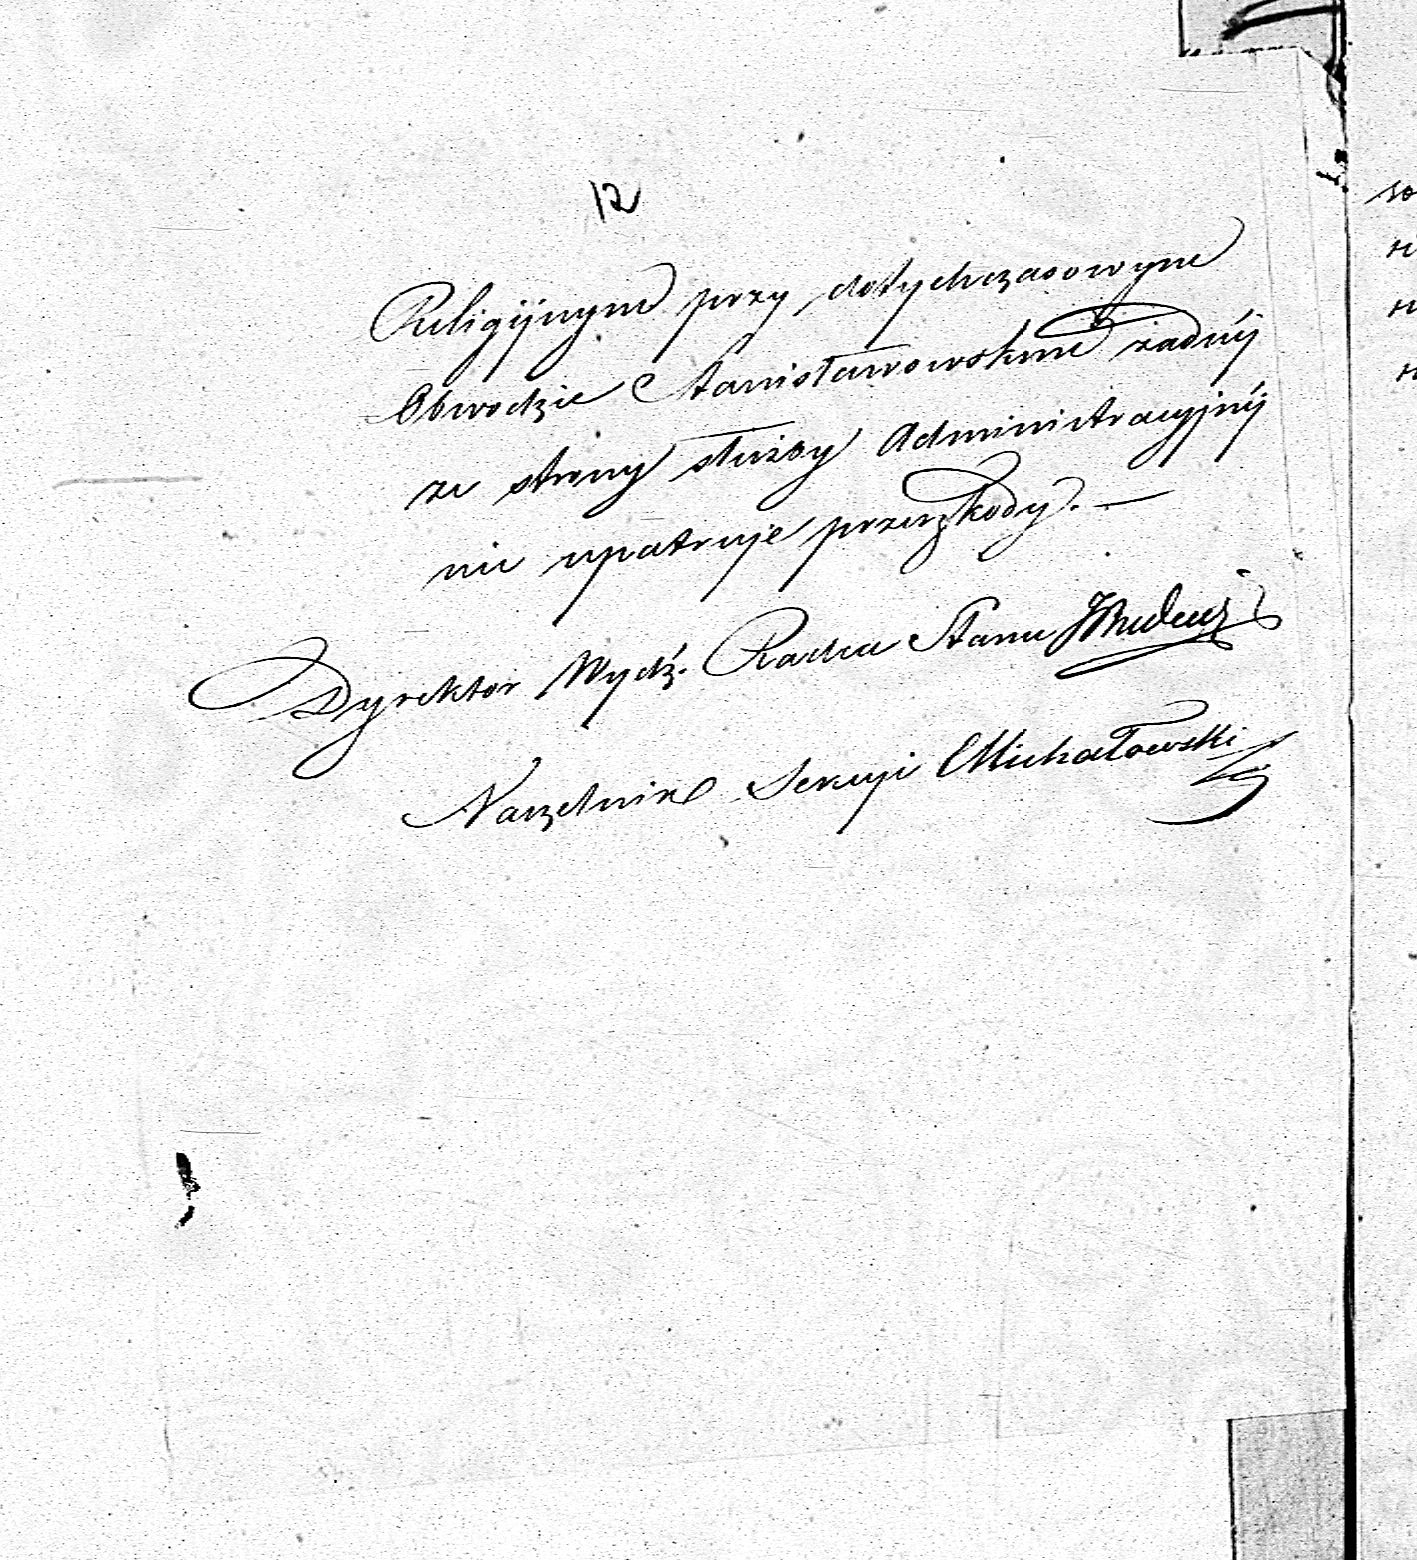 12
Religijnym przy dotychczasowym
Obwodzie Stanisławowskim żadnéj
ze strony służby Administracyjnéj
nie upatruje przeszkody. —
Dyrektor Wydz. Radca Stanu
Naczelnik Sekcyi Michałowski